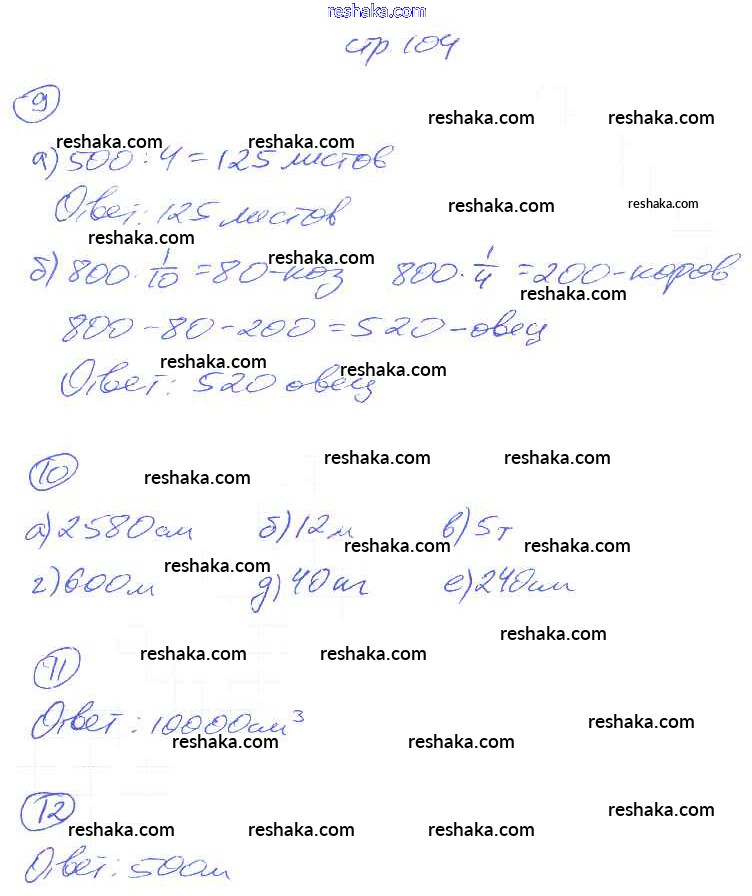 reshaka.com
стр. 104
9
reshaka.com reshaka.com
reshaka.com reshaka.com
а) 500 : 4 = 125 листов
reshaka.com reshaka.com
Ответ: 125 листов
reshaka.com
reshaka.com
б) 800 · 1/10 = 80 - коз 800 · 1/4 = 200 - коров
reshaka.com
800 - 80 - 200 = 520 - овец
reshaka.com reshaka.com
Ответ: 520 овец
reshaka.com reshaka.com
10 reshaka.com
а) 2580 см б) 12 м в) 5 т
reshaka.com reshaka.com
reshaka.com
г) 600 м д) 40 кг е) 240 см
reshaka.com
reshaka.com reshaka.com
11
Ответ: 10000 см³
reshaka.com
reshaka.com reshaka.com
12 reshaka.com
reshaka.com reshaka.com reshaka.com
Ответ: 50 см